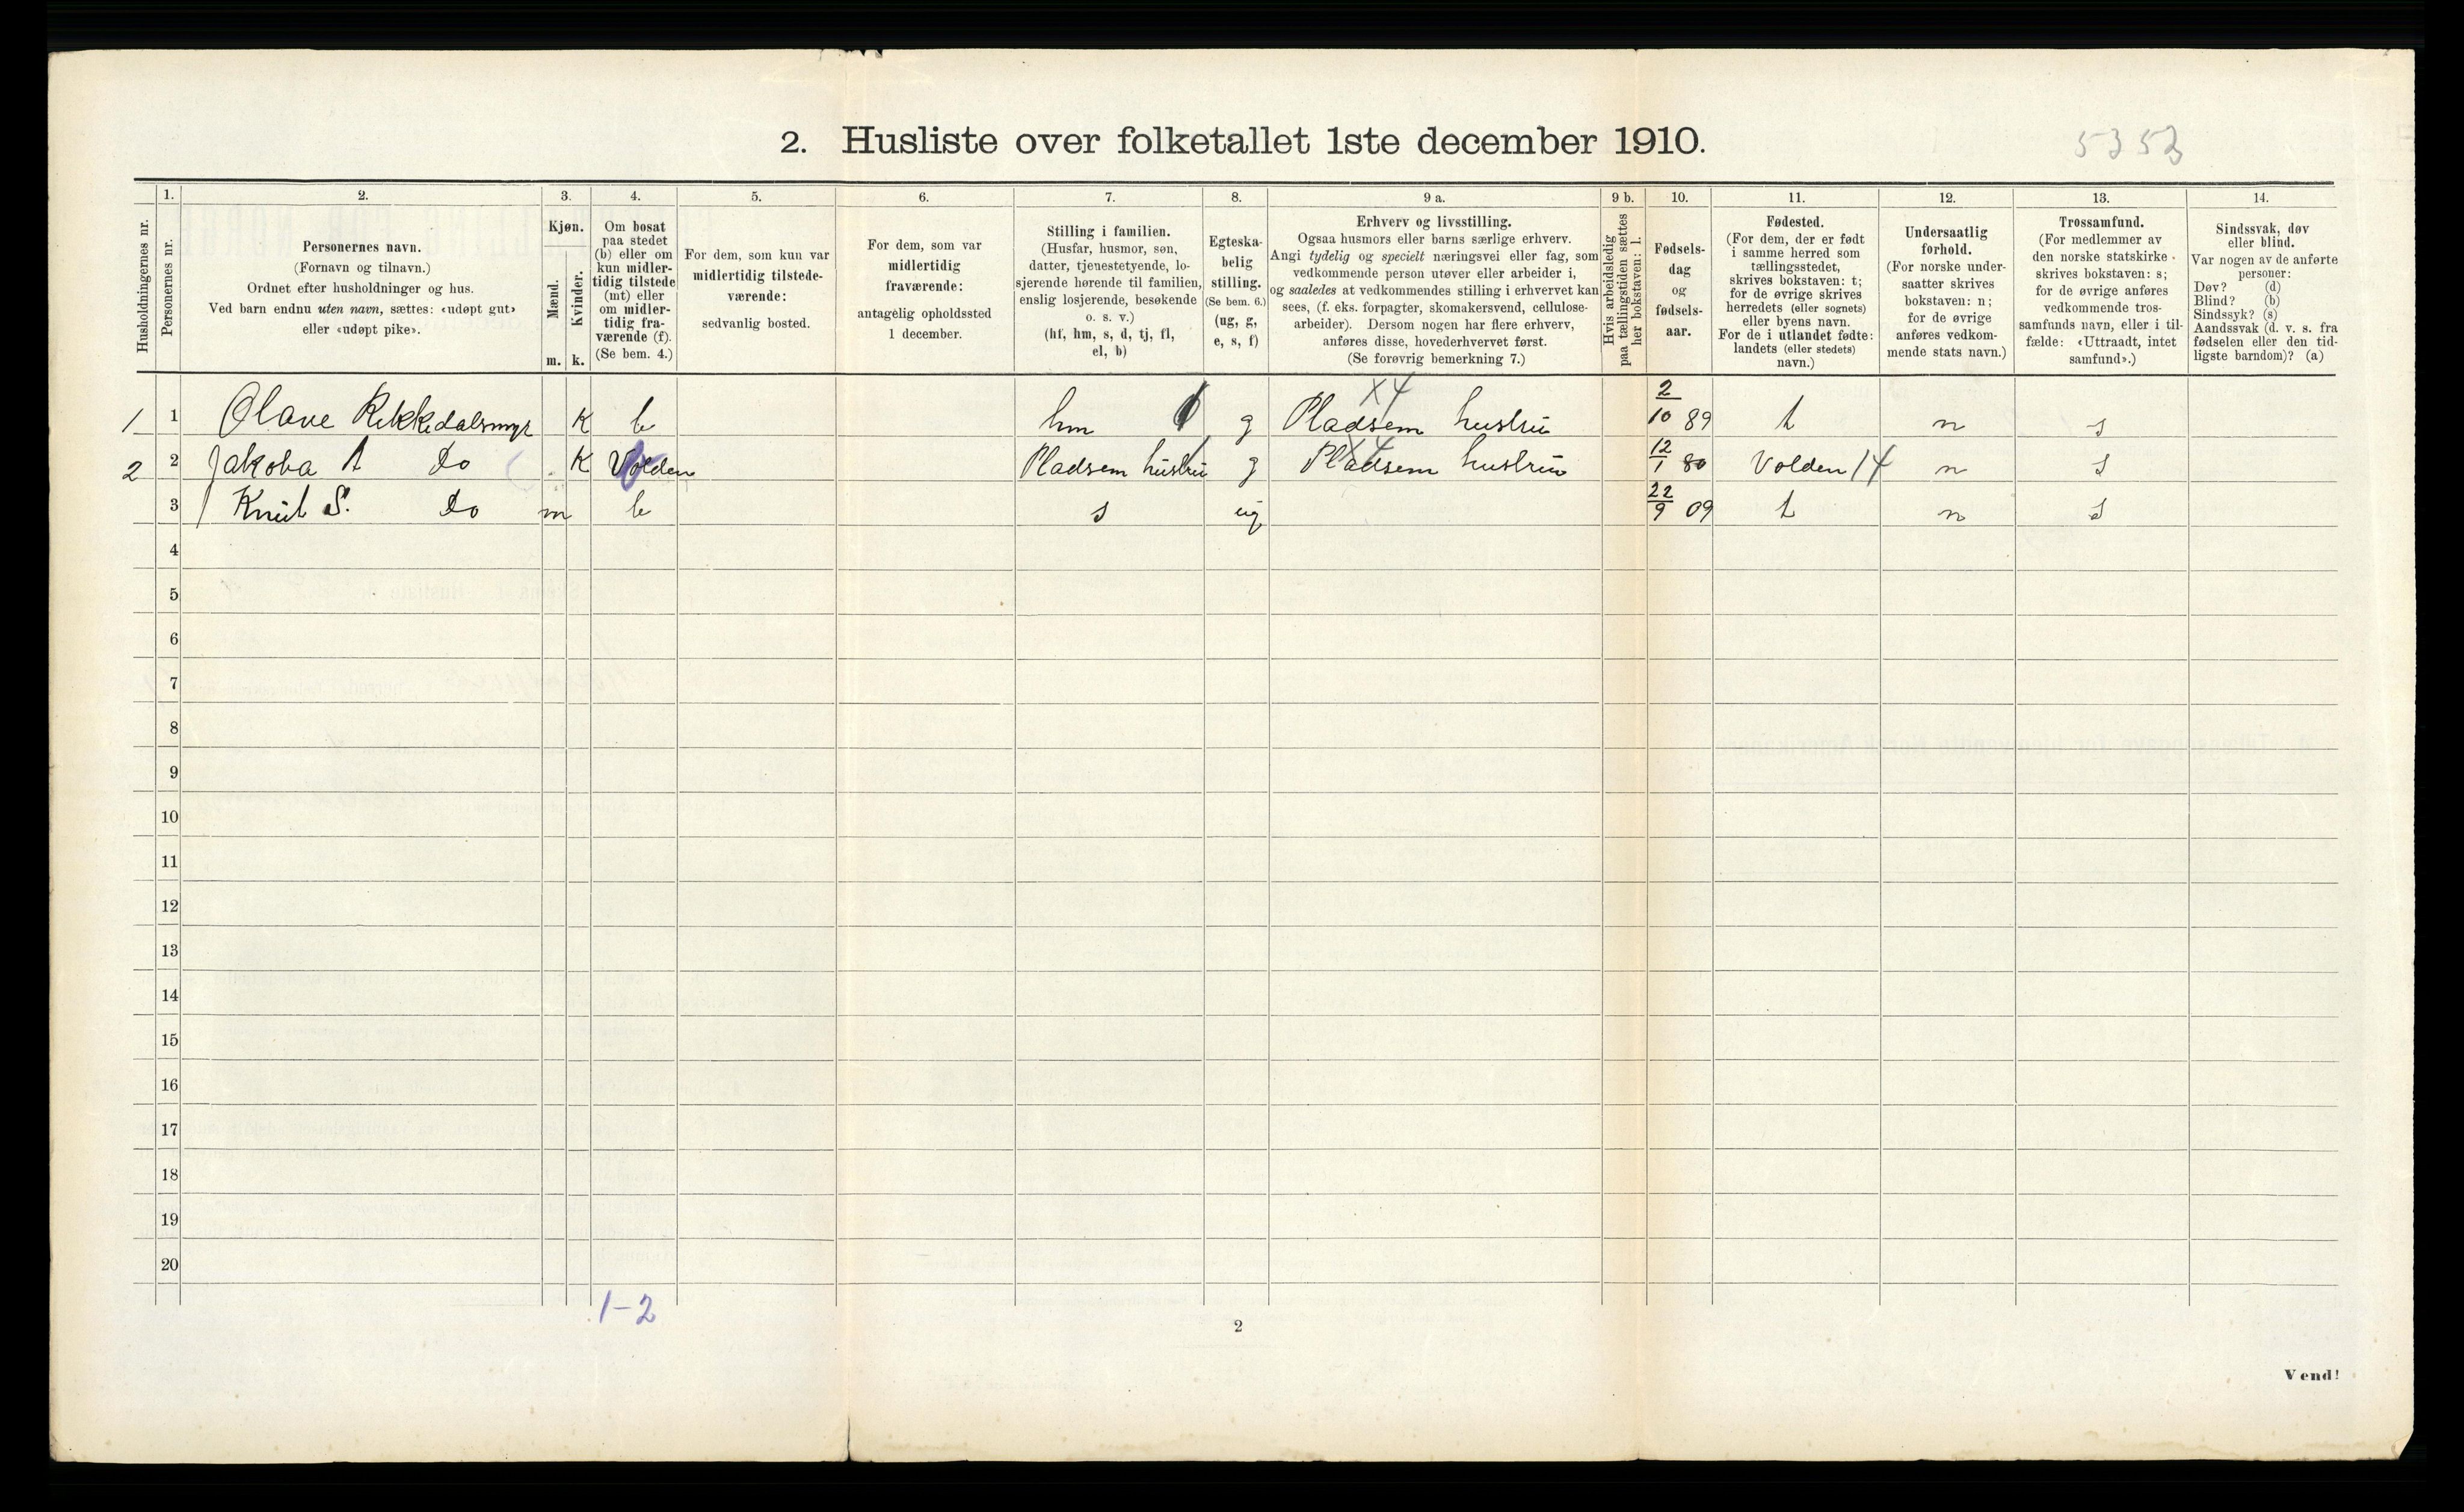 2. Husliste over folketallet 1ste december 1910.
5353
Husholdningernes nr.
1.
Personernes nr.
2.
Personernes navn.
(Fornavn og tilnavn.)
Ordnet efter husholdninger og hus.
Ved barn endnu uten navn, sættes: «udøpt gut»
eller «udøpt pike».
3.
Kjøn.
Mænd.
Kvinder.
m. k.
4.
Om bosat
paa stedet
(b) eller om
kun midler-
tidig tilstede
(mt) eller
om midler-
tidig fra-
værende (f).
(Se bem. 4.)
5.
For dem, som kun var
midlertidig tilstede-
værende:
sedvanlig bosted.
6.
For dem, som var
midlertidig
fraværende:
antagelig opholdssted
1 december.
7.
Stilling i familien.
(Husfar, husmor, søn,
datter, tjenestetyende, lo-
sjerende hørende til familien,
enslig losjerende, besøkende
o. s. v.)
(hf, hm, s, d, tj, fl,
el, b)
8.
Egteska-
belig
stilling.
(Se bem. 6.)
(ug, g,
e, s, f)
9 a.
Erhverv og livsstilling.
Ogsaa husmors eller barns særlige erhverv.
Angi tydelig og specielt næringsvei eller fag, som
vedkommende person utøver eller arbeider i,
og saaledes at vedkommendes stilling i erhvervet kan
sees, (f. eks. forpagter, skomakersvend, cellulose-
arbeider). Dersom nogen har flere erhverv,
anføres disse, hovederhvervet først.
(Se forøvrig bemerkning 7.)
9 b.
Hvis arbeidsledig
paa tællingstiden sættes
her bokstaven: l.
10.
Fødsels-
dag
og
fødsels-
aar.
11.
Fødested.
(For dem, der er født
i samme herred som
tællingsstedet,
skrives bokstaven: t;
for de øvrige skrives
herredets (eller sognets)
eller byens navn.
For de i utlandet fødte:
landets (eller stedets)
navn.)
12.
Undersaatlig
forhold.
(For norske under-
saatter skrives
bokstaven: n;
for de øvrige
anføres vedkom-
mende stats navn.)
13.
Trossamfund.
(For medlemmer av
den norske statskirke
skrives bokstaven: s;
for de øvrige anføres
vedkommende tros-
samfunds navn, eller i til-
fælde: «Uttraadt, intet
samfund».)
14.
Sindssvak, døv
eller blind.
Var nogen av de anførte
personer:
Døv? (d)
Blind? (b)
Sindssyk? (s)
Aandssvak (d. v. s. fra
fødselen eller den tid-
ligste barndom)? (a)
1 1 Olave Rekkedalsmyr K b hm g X4 Pladsem hustru 2/10 89 t n s
2 2 Jakoba A Do K Volden Pladsem hustru g X4 Pladsem hustru 12/1 80 Volden 14 n s
3 Knut S. Do m b s ug 22/9 09 t n s
4
5
6
7
8
9
10
11
12
13
14
15
16
17
18
19
20
1-2
2
Vend!